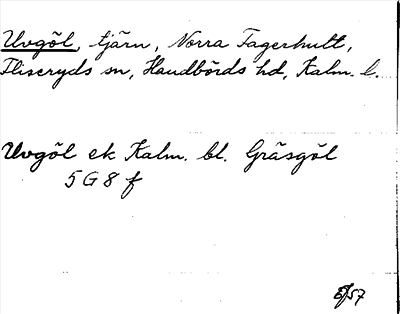 Uvgöl, tjärn, Norra Fagerhult,
Fliseryds sn, Handbörds hd, Kalm. l.
Uvgöl ek Kalm. bl. Gräsgöl
5 G 8 f